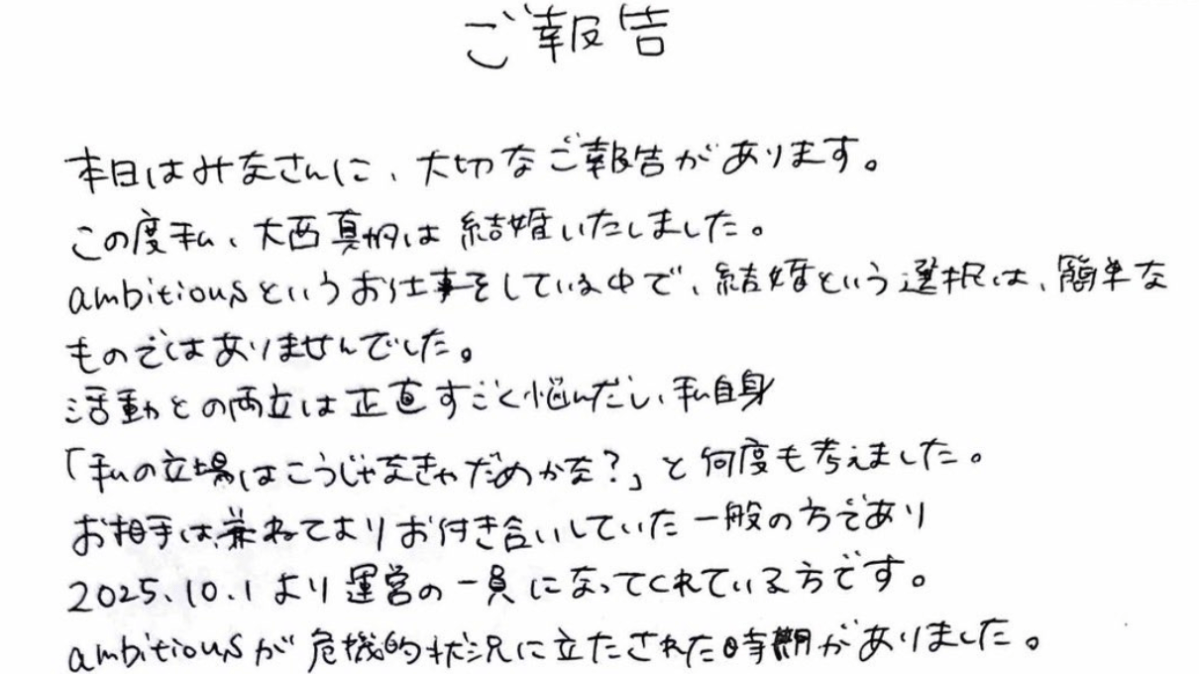 ご報告
本日はみなさんに、大切なご報告があります。
この度私、大西真帆は結婚いたしました。
ambitiousというお仕事をしている中で、結婚という選択は、簡単な
ものではありませんでした。
活動との両立は正直すごく悩んだし、私自身
「私の立場はこうじゃなきゃだめかな?」と何度も考えました。
お相手は、兼ねてよりお付き合いしていた一般の方であり
2025.10.1より運営の一員になってくれている方です。
ambitiousが危機的状況に立たされた時期がありました。